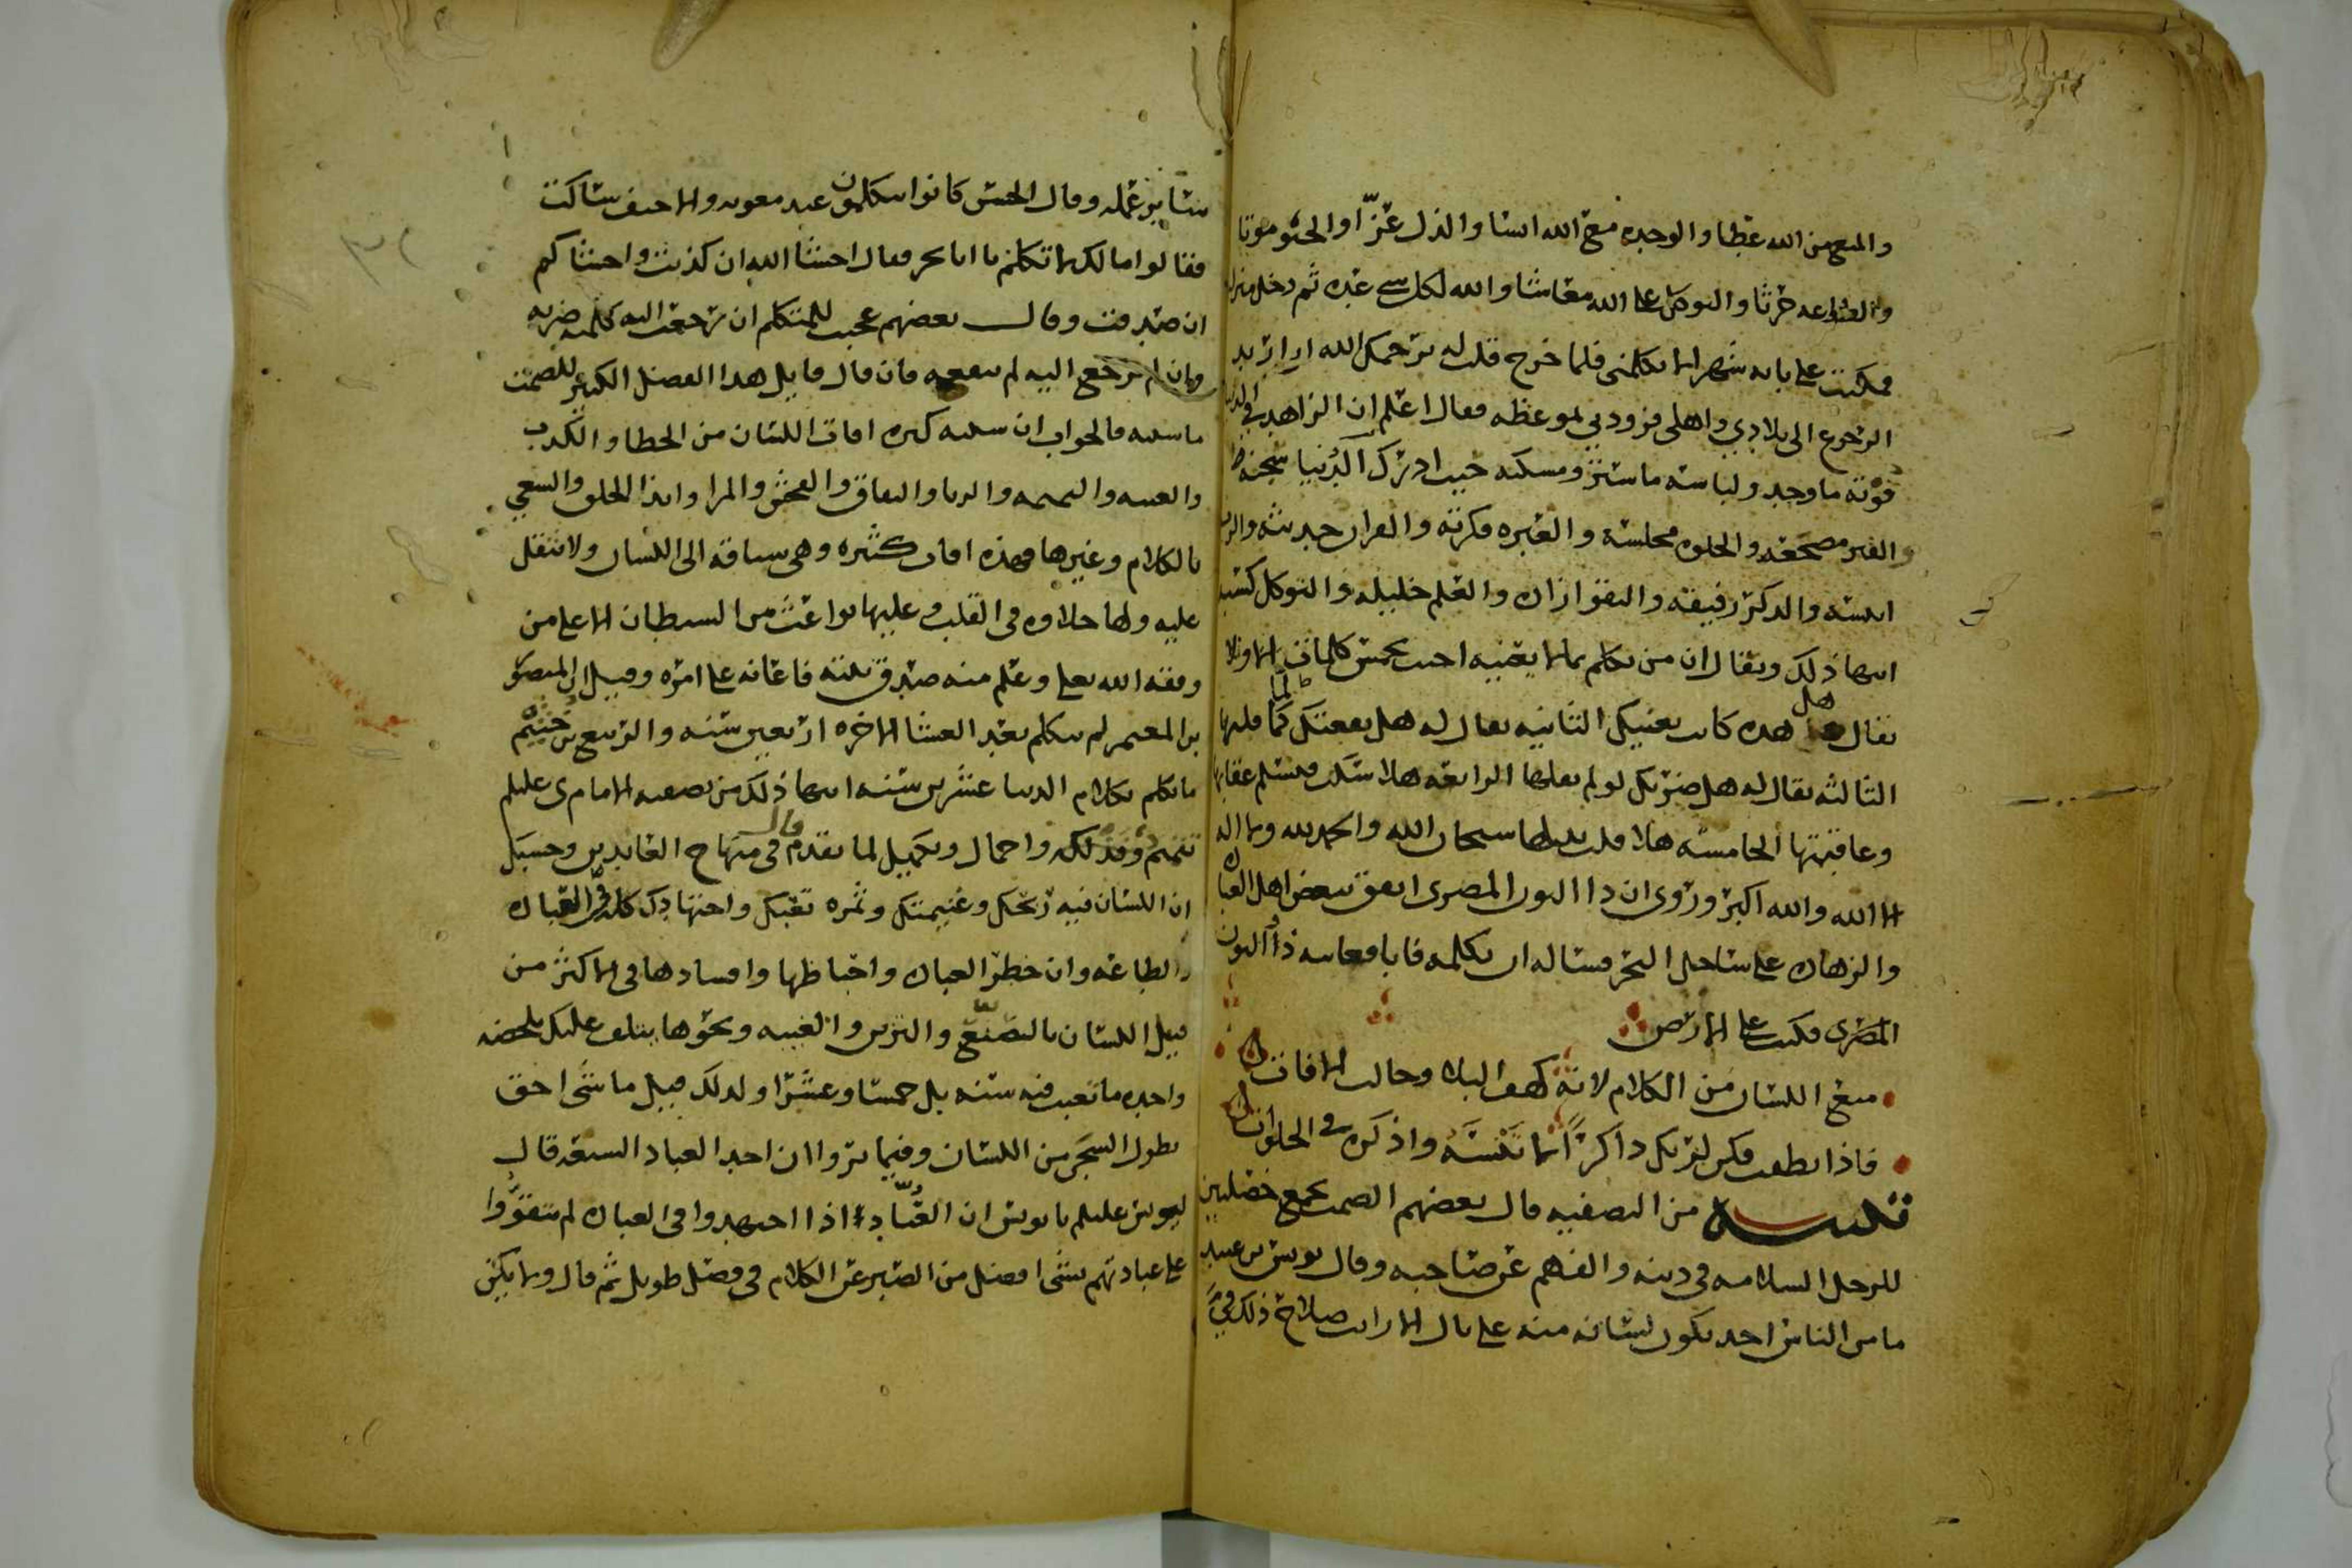 والمنع من الله عطا والوحده مع الله انسا والذل عزا والحيوه موتا
والطاعه حرثا والتوكل على الله معاشا والله لكل شي عده ثم دخل منزله
فمكثت على بابه شهرا لا يكلمني فلما خرج قلت له يرحمك الله اني اريد
الرجوع الى بلادي واهلي فزودني لموعظه فقال اعلم ان الزاهد في الدنيا
قوته ما وجد ولباسه ما ستر ومسكنه حيث ادرك الدنيا سجنه
والقبر مضجعه والخلوه مجلسه والعبره فكرته والقران حديثه والرب
انيسه والذكر رفيقه والتقوا زاده والعلم خليله والتوكل كسبه
انتهى ذلك ويقال ان من تكلم بما لا يعنيه احب بخمس كلمات الاولا
يقال هل هذه كانت تعنيك الثانيه يقال له هل نفعتك لما قلتها
الثالثه يقال له هل ضرتك لو لم تقلها الرابعه هلا سكت فتسلم عقابها
وعاقبتها الخامسه هلا قلت بدلها سبحان الله والحمد لله ولا اله
الا الله والله اكبر وروى ان ذا النون المصري اتفق ببعض اهل العباده
والزهاده على ساحل البحر فساله ان يكلمه فابا فعاتبه ذا النون
المصري فكتب على الارض
منع اللسان من الكلام لانه كهف البلا وجالب الافات
فاذا نطقت فكن لربك ذاكرا لا تنسه واذكره في الخلوات
تنبيه من التصفيه قال بعضهم الصمت يجمع خصلتين
للرجل السلامه في دينه والفهم عن صاحبه وقال يونس بن عبيد
ما من الناس احد يكون لسانه منه على بال الا رايت صلاح ذلك في
ساير عمله وقال الحسن كانوا يتكلمون عند معويه والاحنف ساكت
فقالوا ما لك لا تتكلم يا ابا بحر فقال اخشا الله ان كذبت واخشاكم
ان صدقت وقال بعضهم عجبت للمتكلم ان رجعت اليه كلمته ضرته
وان لم ترجع اليه لم تنفعه فان قال قايل هذا الفضل الكبير للصمت
ما سببه فالجواب ان سببه كثره افات اللسان من الخطا والكذب
والغيبه والنميمه والريا والنفاق والفحش والمرا وايذا الخلق والسعي
بالكلام وغيرها فهذه افات كثيره وهي سباقه الى اللسان ولا تثقل
عليه ولها حلاوه في القلب وعليها بواعث من الشيطان الا على من
وفقه الله تعلى وعلم منه صدق نيته فاعانه على امره وقيل ان المنصور
بن المعتمر لم يتكلم بعد العشا الاخره اربعين سنه والربيع بن خثيم
ما تكلم بكلام الدنيا عشرين سنه انتهى ذلك من تصفيه الامام ى عليلم
تتميم وفذلكه واجمال وتكميل لما تقدم قال في منهاج العابدين وحسبك
ان اللسان فيه ربحك وغنيمتك وثمره تعبك واجتهادك كله في العباده
والطاعه وان خطر العباده واحباطها وافسادها في الاكثر من
قبل اللسان بالتصنع والتزين والغيبه ونحوها يتلف عليك بلحظه
واحده ما تعبت فيه سنه بل خمسا وعشرا ولذلك قيل ما شي احق
بطول السجن من اللسان وفيما يروا ان احد العباد السبعه قال
ليونس عليلم يا يونس ان العباد اذا اجتهدوا في العباده لم يتقووا
على عبادتهم بشي افضل من الصبر عن الكلام في فصل طويل ثم قال ولا يكن